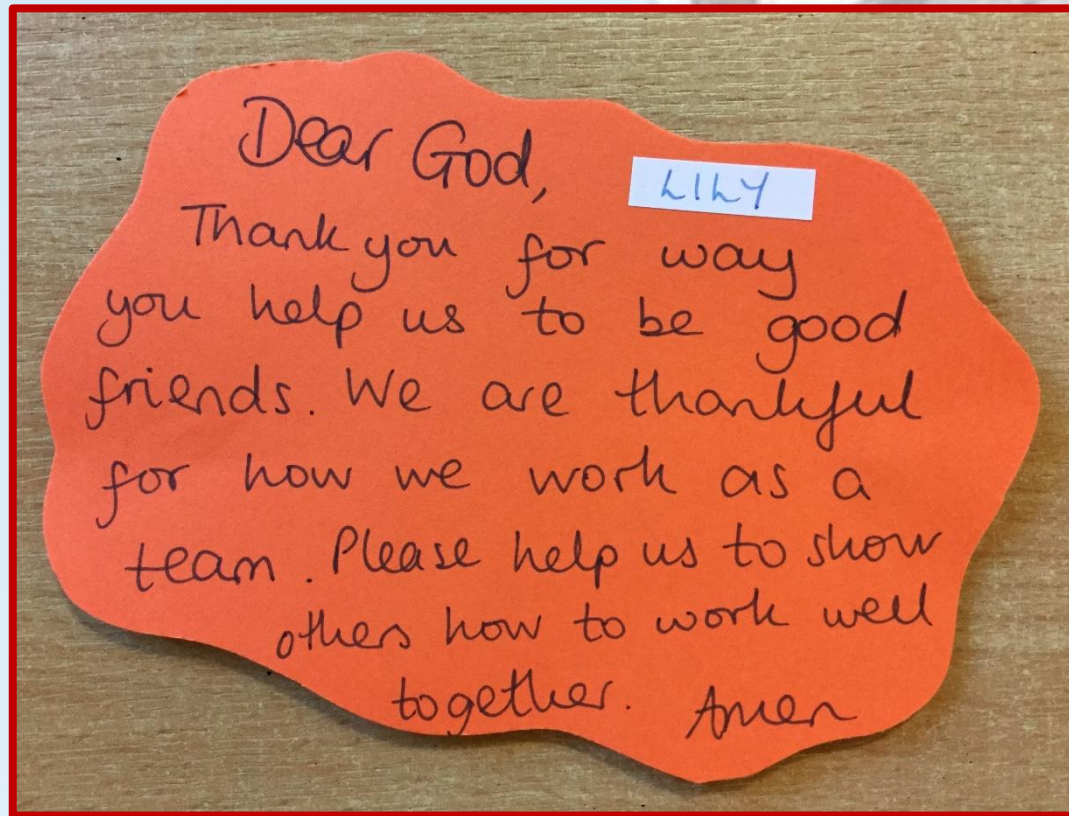 Dear God,
LILY
Thank you for way
you help us to be good
friends. We are thankful
for how we work as a
team. Please help us to show
others how to work well
together. Amen